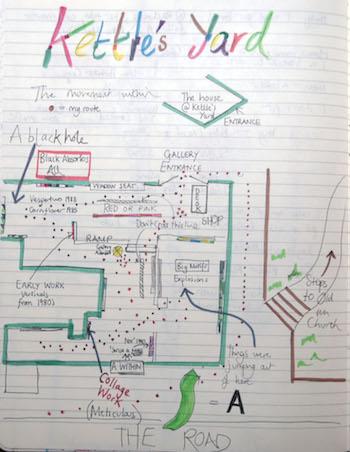 Kettle's Yard
The movement within
= my route
The house
@ Kettle's
Yard
ENTRANCE
A black hole
Black Absorbs
All
GALLERY
ENTRANCE
WINDOW SEAT
RED OR PINK
SHOP
Don't pass this line
RAMP
EARLY WORK
(Verticals
from 1980)
Big Noisy
Explosions
Steps
to old
Church
Things were
jumping out
of here
A WITHIN
Collage
Work
(Meticulous)
= A
THE ROAD